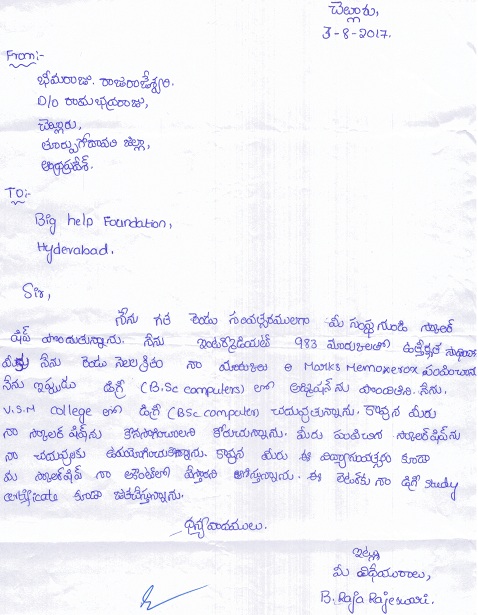 చెల్లూరు,
3-8-2017.
From:-
భీమరాజు. రాజరాజేశ్వరి.
D/o రామభద్రరాజు,
చెల్లూరు,
తూర్పుగోదావరి జిల్లా,
ఆంధ్రప్రదేశ్.
TO:-
Big help Foundation,
Hyderabad.
Sir,
నేను గత రెండు సంవత్సరములుగా మీ సంస్థ నుండి స్కాలర్
షిప్ పొందుతున్నాను. నేను ఇంటర్మీడియట్ 983 మార్కులతో ఉత్తీర్ణత
నేను రెండు నెలల క్రితం నా మార్కుల Marks Memo xerox పంపించాను
నేను ఇప్పుడు డిగ్రీ (B.Sc computers) లో అడ్మిషన్ ను పొందితిని. నేను.
V.S.M college లో డిగ్రీ (BSc computer) చదువుతున్నాను. కావున మీరు
నా స్కాలర్ షిప్ ను కొనసాగించాలని కోరుచున్నాను. మీరు పంపించిన స్కాలర్ షిప్ ను
నా చదువులకు ఉపయోగించుతున్నాను. కావున మీరు ఈ విద్యాసంవత్సరం కూడా
మీ స్కాలర్ షిప్ నా అకౌంట్ లో వేస్తారని ఆశిస్తున్నాను. ఈ లెటర్ కు నా డిగ్రీ study
certificate కూడా జతచేస్తున్నాను.
ధన్యవాదములు.
ఇట్లు
మీ విధేయురాలు,
B. Raja Rajeswari.